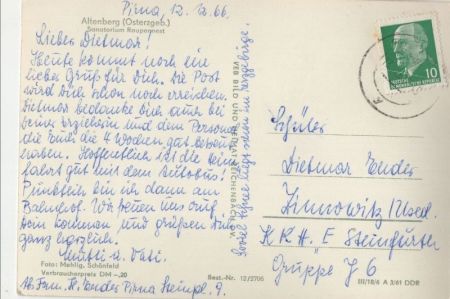 Pirna, 12. 2. 66.
Altenberg (Osterzgeb.)
Sanatorium Raupennest
Lieber Dietmar!
Heute kommt noch ein
lieber Gruß für Dich. Die Post
wird Dich schon noch erreichen.
Dietmar bedanke Dich auch bei
Deiner Erzieherin und dem Personal
die Euch die 4 Wochen gut betreut
haben. Hoffentlich ist die Heim-
fahrt gut mit dem Autobus!
Pünktlich bin ich dann am
Bahnhof. Wir freuen uns auf
Dein Kommen und grüßen Dich
ganz herzlich.
Mutti u. Vati.
Foto: Mehlig, Schönfeld
Verbraucherpreis DM –,20
Best.-Nr. 12/2706
Abs. Fam. H. Enders Pirna 9
Soviel Schnee liegt schon im Erzgebirge.
VEB BILD UND HEIMAT REICHENBACH I. V.
DEUTSCHE DEMOKRATISCHE REPUBLIK
10
Schüler
Dietmar Enders
Zinnowitz/Used.
KKH. E Steinfürter
Gruppe J 6
III/18/6 A 3/61 DDR